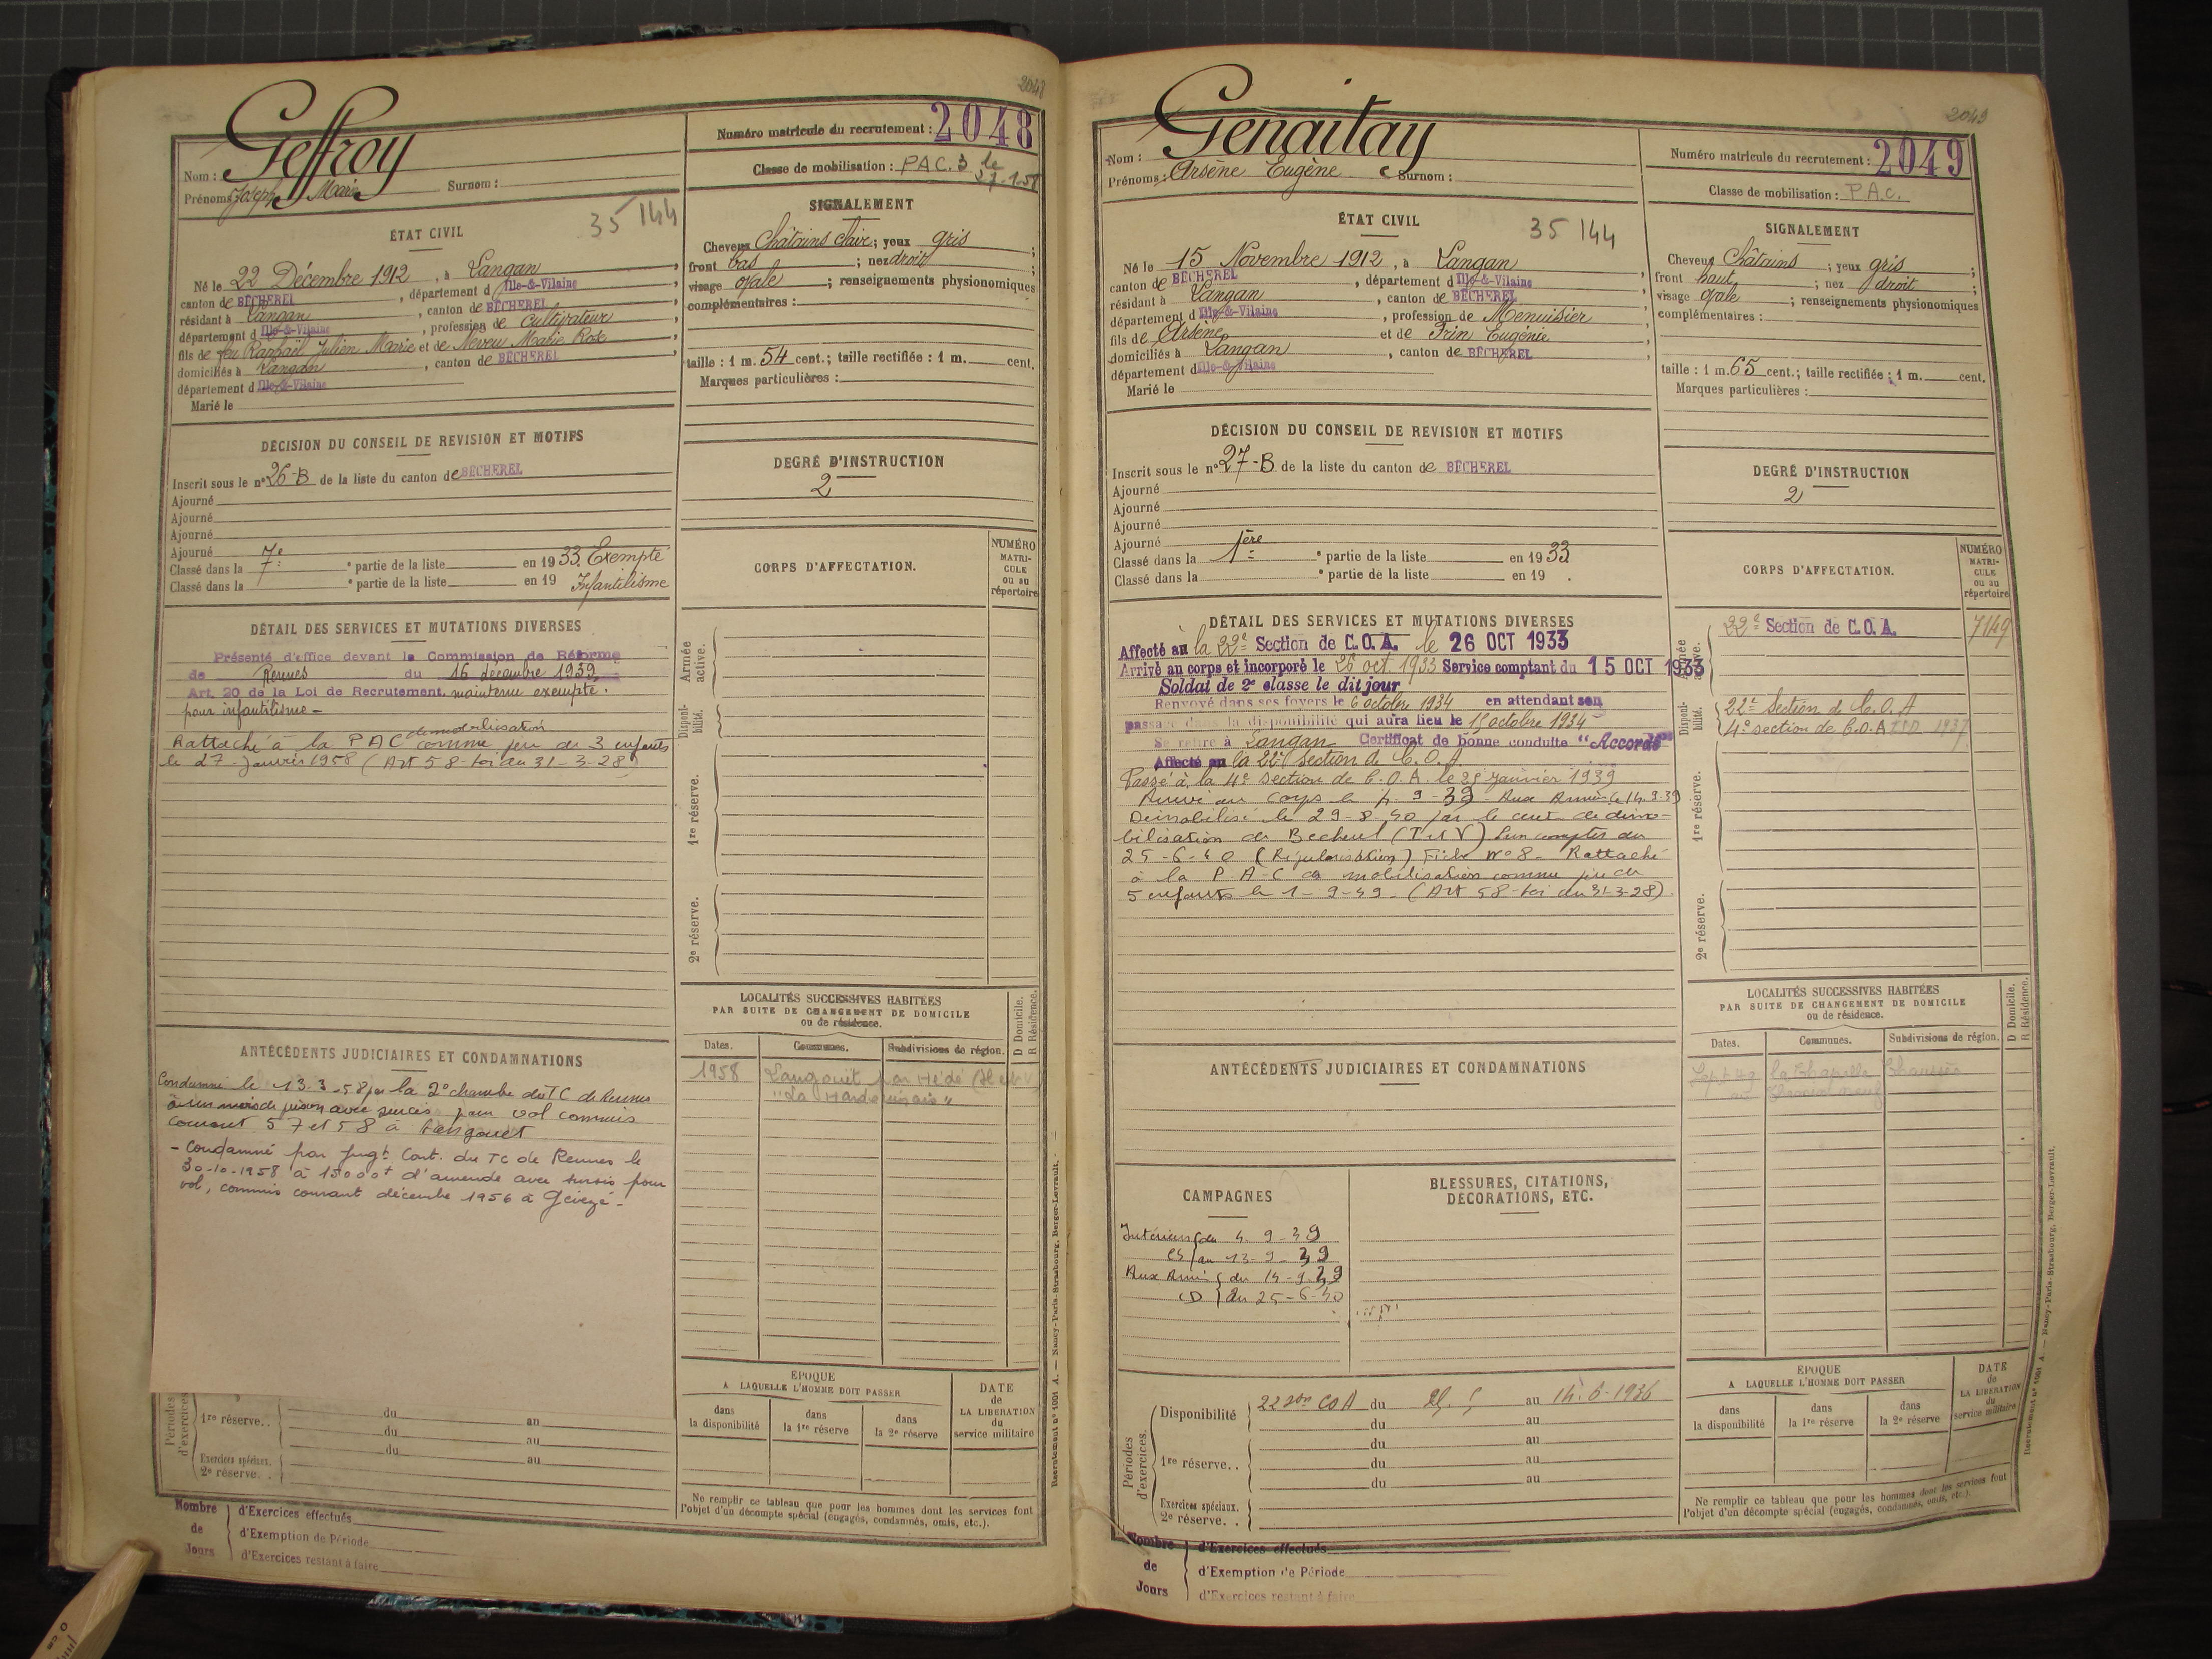 2048
Geffroy
Nom :
Prénoms : Joseph Marie Surnom :
Numéro matricule du recrutement : 2048
Classe de mobilisation : P.A.C. 3 le
27-1-58
35 144
ÉTAT CIVIL
Né le 22 Décembre 1912, à Langan,
canton de BÉCHEREL, département d'Ille-&-Vilaine
résidant à Langan, canton de BÉCHEREL
département d'Ille-&-Vilaine, profession de Cultivateur
fils de feu Raphaël Julien Marie et de Neveu Marie Rose
domiciliés à Langan, canton de BÉCHEREL
département d'Ille-&-Vilaine
Marié le
SIGNALEMENT
Cheveux Châtains clair ; yeux gris ;
front bas ; nez droit ;
visage ovale ; renseignements physionomiques
complémentaires :
taille : 1 m. 54 cent.; taille rectifiée : 1 m. cent.
Marques particulières :
DÉCISION DU CONSEIL DE REVISION ET MOTIFS
Inscrit sous le n° 26-B de la liste du canton de BÉCHEREL
Ajourné
Ajourné
Ajourné
Ajourné
Classé dans la 7e partie de la liste en 1933. Exempté
Classé dans la e partie de la liste en 19 Infantilisme
DEGRÉ D'INSTRUCTION
2
CORPS D'AFFECTATION.
NUMÉRO
MATRI-
CULE
ou au
répertoire
DÉTAIL DES SERVICES ET MUTATIONS DIVERSES
Présenté d'office devant la Commission de Réforme
de Rennes du 16 décembre 1939
Art. 20 de la Loi de Recrutement. maintenu exempté.
pour infantilisme -
de mobilisation
Rattaché à la PAC comme père de 3 enfants
le 27 Janvier 1958 (Art 58 loi du 31-3-28)
Armée
active.
Disponi-
bilité.
1re réserve.
2e réserve.
ANTÉCÉDENTS JUDICIAIRES ET CONDAMNATIONS
Condamné le 13.3-58 par la 2e chambre du TC de Rennes
à un mois de prison avec sursis pour vol commis
courant 57 et 58 à Langouet
- Condamné par jugt Cont. du TC de Rennes le
30-10-1958 à 15000f d'amende avec sursis pour
vol, commis courant décembre 1956 à Gévezé -
LOCALITÉS SUCCESSIVES HABITÉES
PAR SUITE DE CHANGEMENT DE DOMICILE
ou de résidence.
D Domicile.
R Résidence.
Dates. Communes. Subdivisions de région.
1958 Langouët par Hédé (Il et V)
Périodes
d'exercices
1re réserve. . du au
du au
du au
Exercices spéciaux.
2e réserve. .
ÉPOQUE
A LAQUELLE L'HOMME DOIT PASSER
dans
la disponibilité
dans
la 1re réserve
dans
la 2e réserve
DATE
de
LA LIBÉRATION
du
service militaire
Ne remplir ce tableau que pour les hommes dont les services font
l'objet d'un décompte spécial (engagés, condamnés, omis, etc.).
Nombre
de
Jours
d'Exercices effectués
d'Exemption de Période
d'Exercices restant à faire
Recrutement n° 1001 A. — Nancy-Paris-Strasbourg, Berger-Levrault.
2049
Genaitay
Nom :
Prénoms : Arsène Eugène Surnom :
Numéro matricule du recrutement : 2049
Classe de mobilisation : P.A.C.
35 144
ÉTAT CIVIL
Né le 15 Novembre 1912, à Langan
canton de BÉCHEREL, département d'Ille-&-Vilaine
résidant à Langan, canton de BÉCHEREL
département d'Ille-&-Vilaine, profession de Menuisier
fils de Arsène et de Prin Eugénie
domiciliés à Langan, canton de BÉCHEREL
département d'Ille-&-Vilaine
Marié le
SIGNALEMENT
Cheveux Châtains ; yeux gris ;
front haut ; nez droit ;
visage ovale ; renseignements physionomiques
complémentaires :
taille : 1 m. 65 cent.; taille rectifiée : 1 m. cent.
Marques particulières :
DÉCISION DU CONSEIL DE REVISION ET MOTIFS
Inscrit sous le n° 27-B de la liste du canton de BÉCHEREL
Ajourné
Ajourné
Ajourné
Ajourné
Classé dans la 1ère partie de la liste en 1933
Classé dans la e partie de la liste en 19 .
DEGRÉ D'INSTRUCTION
2
CORPS D'AFFECTATION.
NUMÉRO
MATRI-
CULE
ou au
répertoire
DÉTAIL DES SERVICES ET MUTATIONS DIVERSES
Affecté au la 22e Section de C.O.A. le 26 OCT 1933
Arrivé au corps et incorporé le 26 oct. 1933 Service comptant du 15 OCT 1933
Soldat de 2e classe le dit jour
Renvoyé dans ses foyers le 6 octobre 1934 en attendant son
passage dans la disponibilité qui aura lieu le 15 octobre 1934
Se retire à Langan Certificat de bonne conduite "Accordé"
Affecté au la 22e Section de C.O.A.
Passé à la 4e section de C.O.A. le 25 janvier 1939
Arrivé au corps le 4-9-39 Aux Armées le 14.9.39
Démobilisé le 29-8-40 par le cent. de démo-
bilisation de Becherel (I et V)
25-6-40 (Régularisation) Fiche N° 8 - Rattaché
à la P.A.C de mobilisation comme père de
5 enfants le 1-9-49 - (Art 58 loi du 31-3-28)
Armée
active.
22e Section de C.O.A. 7149
Disponi-
bilité.
22e Section de C.O.A
4e section de C.O.A
1re réserve.
2e réserve.
LOCALITÉS SUCCESSIVES HABITÉES
PAR SUITE DE CHANGEMENT DE DOMICILE
ou de résidence.
D Domicile.
R Résidence.
Dates. Communes. Subdivisions de région.
Sept 49 la Chapelle Chaussée
ANTÉCÉDENTS JUDICIAIRES ET CONDAMNATIONS
CAMPAGNES
Intérieur du 4-9-39
CS au 13-9-39
Aux Armées du 14-9-39
CD au 25-6-40
BLESSURES, CITATIONS,
DÉCORATIONS, ETC.
Périodes
d'exercices.
Disponibilité 22 son COA du 25.5 au 14.6-1936
du au
1re réserve. . du au
du au
du au
Exercices spéciaux.
2e réserve. .
ÉPOQUE
A LAQUELLE L'HOMME DOIT PASSER
dans
la disponibilité
dans
la 1re réserve
dans
la 2e réserve
DATE
de
LA LIBÉRATION
du
service militaire
Ne remplir ce tableau que pour les hommes dont les services font
l'objet d'un décompte spécial (engagés, condamnés, omis, etc.).
Nombre
de
Jours
d'Exercices effectués
d'Exemption de Période
d'Exercices restant à faire
Recrutement n° 1001 A. — Nancy-Paris-Strasbourg, Berger-Levrault.